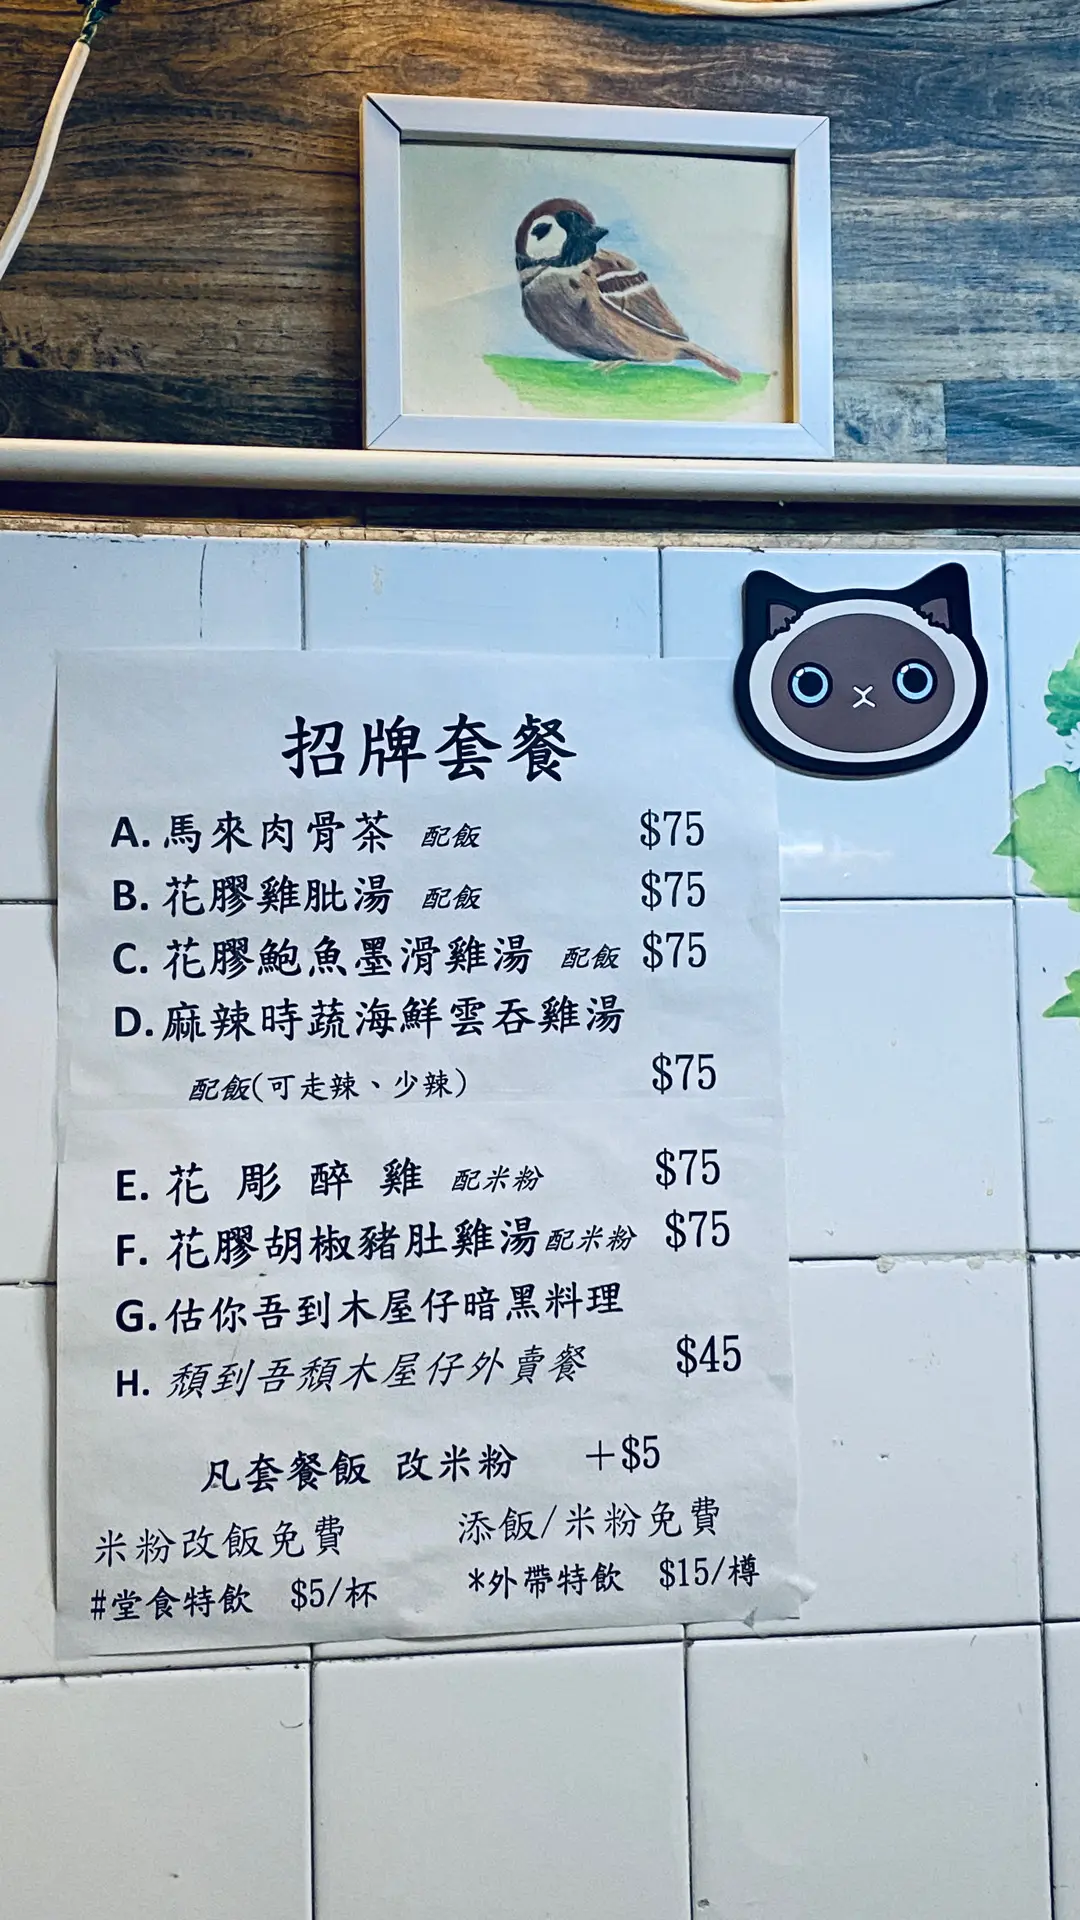 招牌套餐
A. 馬來肉骨茶 配飯 $75
B. 花膠雞肶湯 配飯 $75
C. 花膠鮑魚墨滑雞湯 配飯 $75
D. 麻辣時蔬海鮮雲吞雞湯
配飯(可走辣、少辣) $75
E. 花 彫 醉 雞 配米粉 $75
F. 花膠胡椒豬肚雞湯配米粉 $75
G. 估你吾到木屋仔暗黑料理
H. 頹到吾頹木屋仔外賣餐 $45
凡套餐飯 改米粉 +$5
米粉改飯免費 添飯/米粉免費
#堂食特飲 $5/杯 *外帶特飲 $15/樽